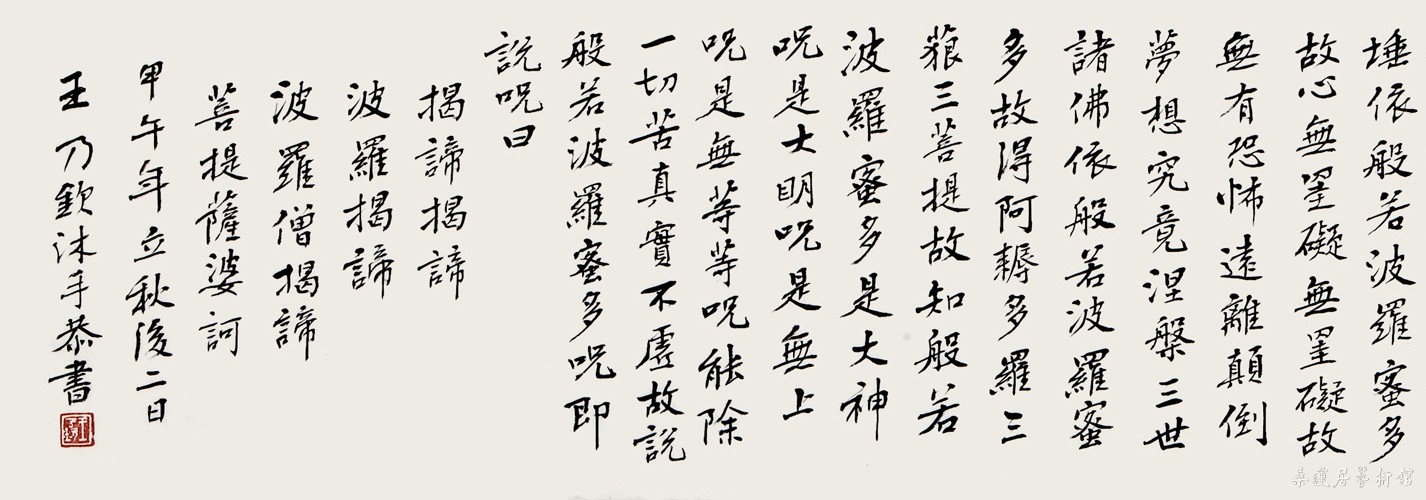 埵依般若波羅蜜多
故心無罣礙無罣礙故
無有恐怖遠離顛倒
夢想究竟涅槃三世
諸佛依般若波羅蜜
多故得阿耨多羅三
藐三菩提故知般若
波羅蜜多是大神
咒是大明咒是無上
咒是無等等咒能除
一切苦真實不虛故說
般若波羅蜜多咒即
說咒曰
揭諦揭諦
波羅揭諦
波羅僧揭諦
菩提薩婆訶
甲午年立秋後二日
王乃欽沐手恭書